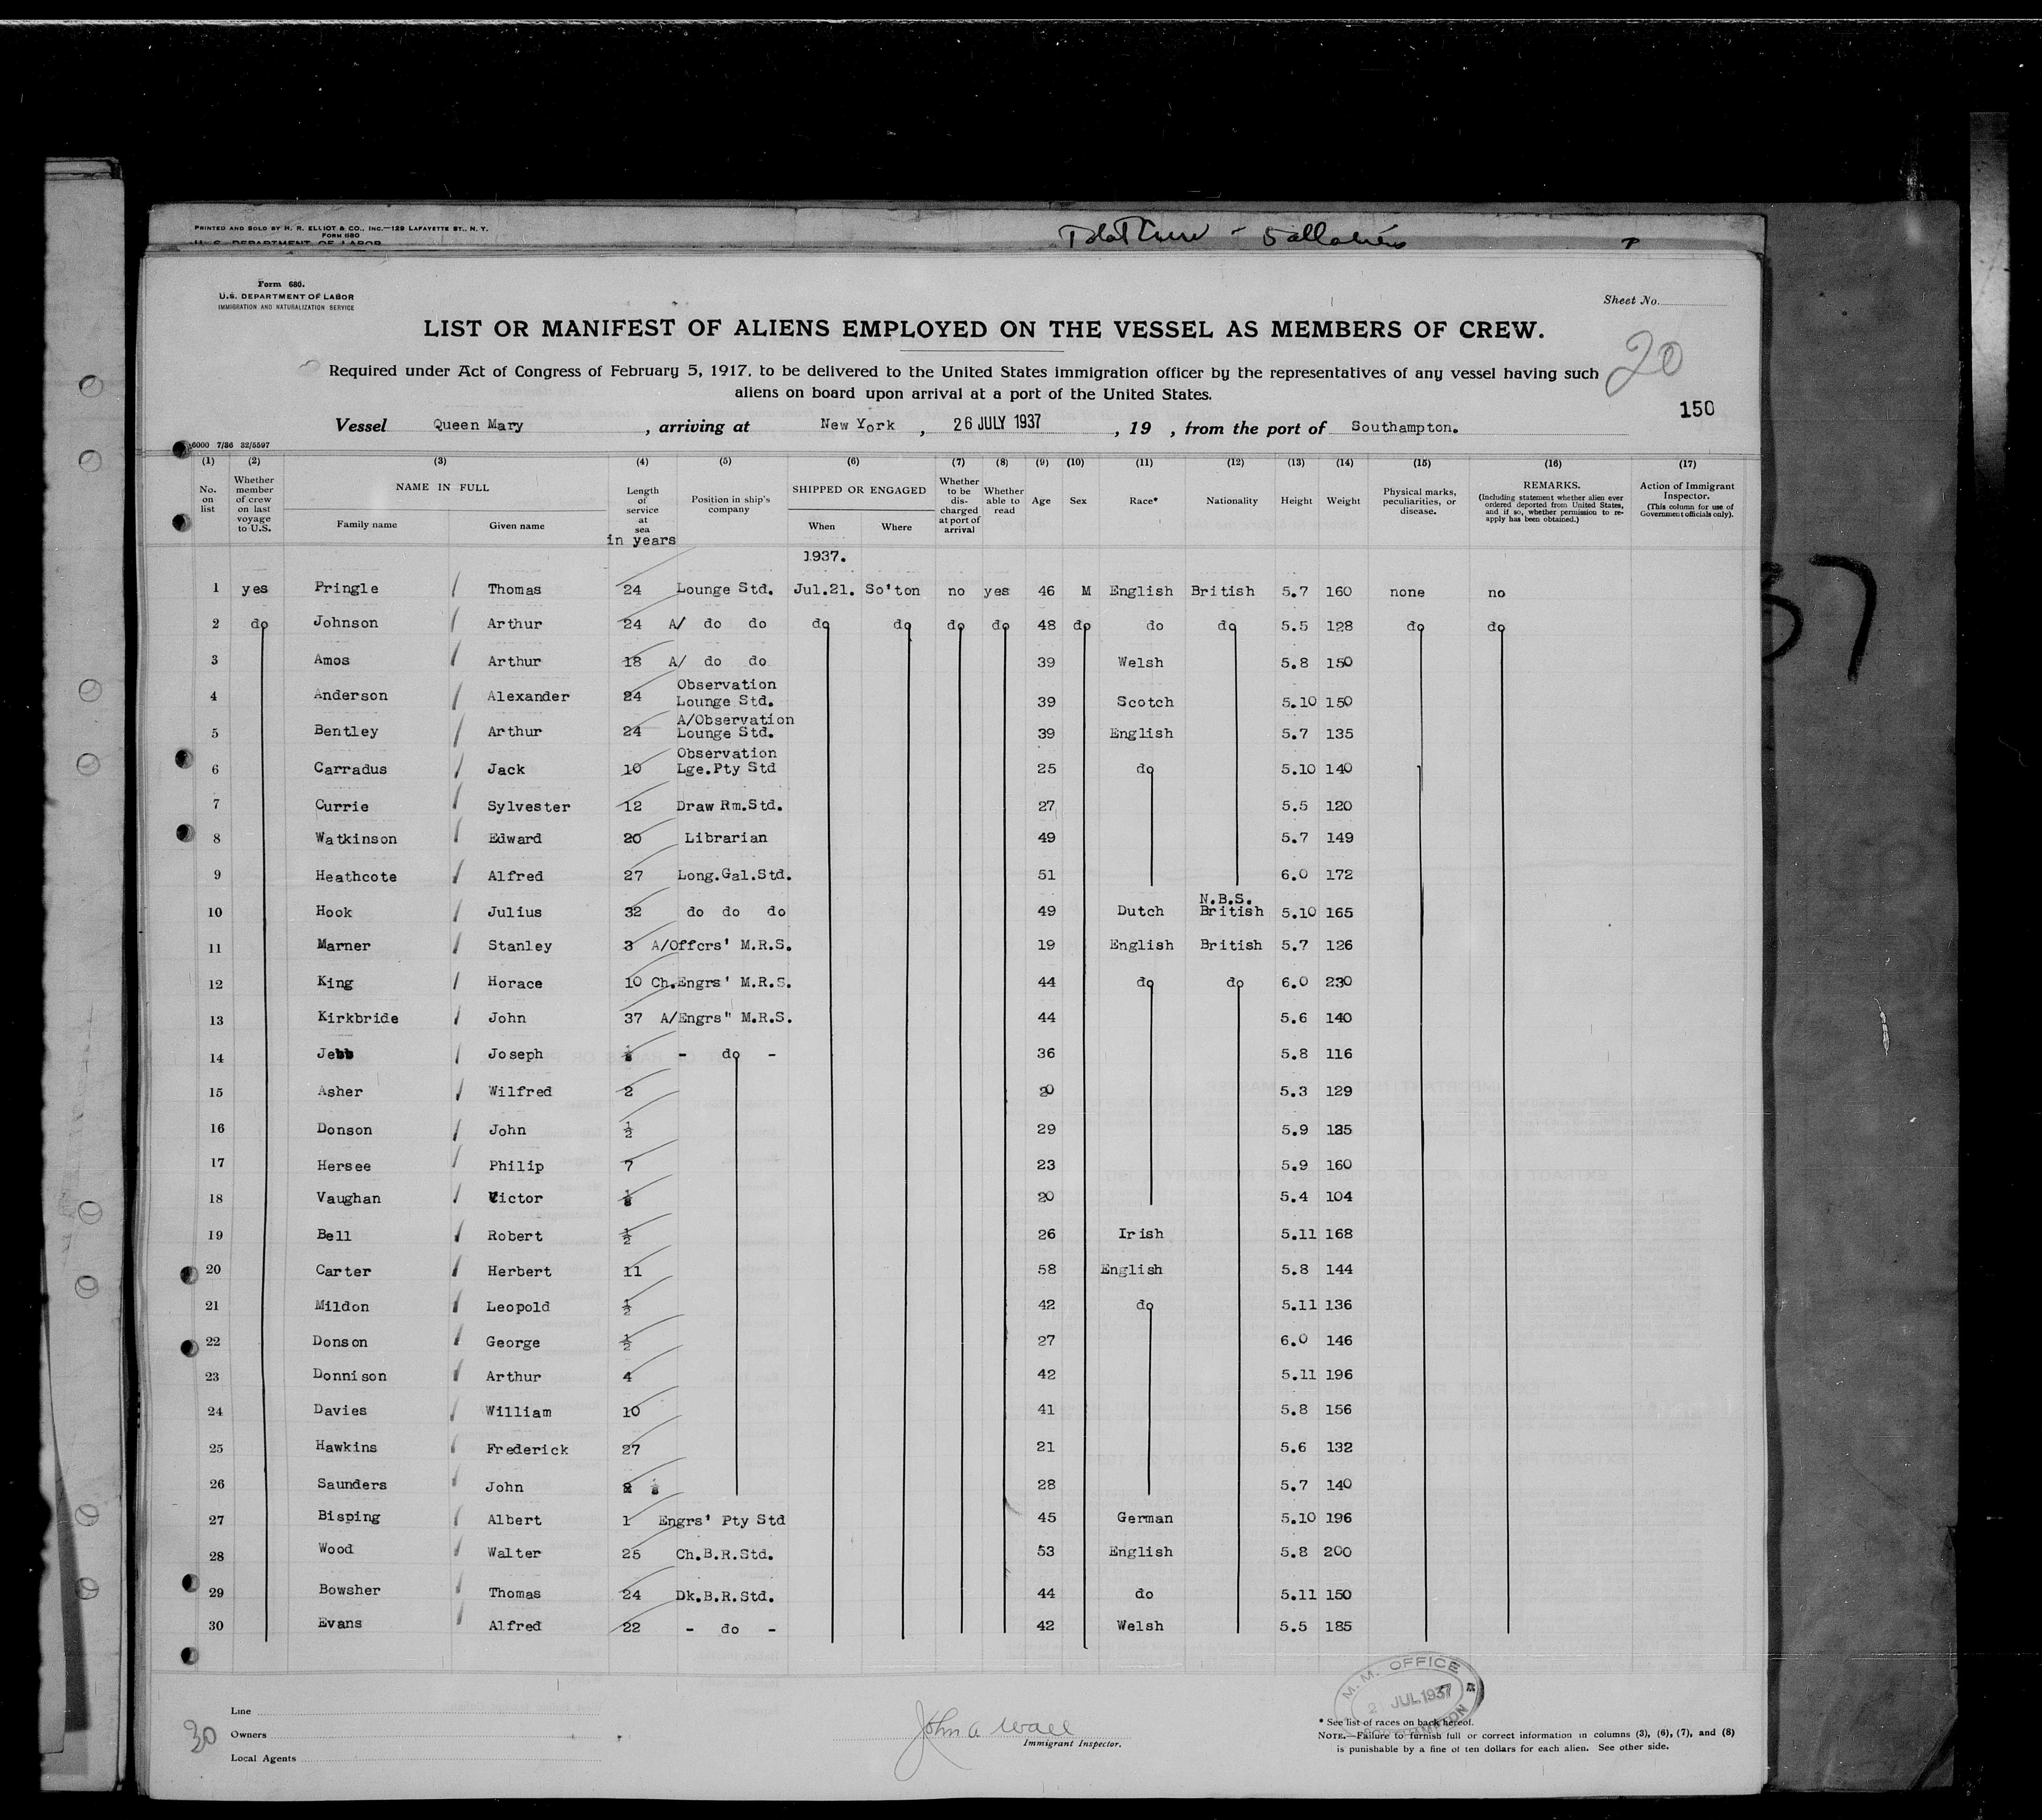 PRINTED AND SOLD BY H. R. ELLIOT & CO., INC.—129 LAFAYETTE ST., N. Y.
FORM 680
U. S. DEPARTMENT OF LABOR
Form 680.
U.S. DEPARTMENT OF LABOR
IMMIGRATION AND NATURALIZATION SERVICE
Sheet No.
LIST OR MANIFEST OF ALIENS EMPLOYED ON THE VESSEL AS MEMBERS OF CREW.
20
Required under Act of Congress of February 5, 1917, to be delivered to the United States immigration officer by the representatives of any vessel having such
aliens on board upon arrival at a port of the United States.
150
Vessel Queen Mary, arriving at New York, 26 JULY 1937, 19 , from the port of Southampton.
6000 7/36 32/5597
(1) (2) (3) (4) (5) (6) (7) (8) (9) (10) (11) (12) (13) (14) (15) (16) (17)
No. on list Whether member of crew on last voyage to U.S. NAME IN FULL Family name Given name Length of service at sea in years Position in ship's company SHIPPED OR ENGAGED When Where Whether to be discharged at port of arrival Whether able to read Age Sex Race* Nationality Height Weight Physical marks, peculiarities, or disease. REMARKS. (Including statement whether alien ever ordered deported from United States, and if so, whether permission to re-apply has been obtained.) Action of Immigrant Inspector. (This column for use of Government officials only).
1937.
1 yes Pringle Thomas 24 Lounge Std. Jul.21. So'ton no yes 46 M English British 5.7 160 none no
2 do Johnson Arthur 24 A/ do do do do do do 48 do do do 5.5 128 do do
3 Amos Arthur 18 A/ do do 39 Welsh 5.8 150
4 Anderson Alexander 24 Observation Lounge Std. 39 Scotch 5.10 150
5 Bentley Arthur 24 A/Observation Lounge Std. 39 English 5.7 135
6 Carradus Jack 10 Observation Lge.Pty Std 25 do 5.10 140
7 Currie Sylvester 12 Draw Rm.Std. 27 5.5 120
8 Watkinson Edward 20 Librarian 49 5.7 149
9 Heathcote Alfred 27 Long.Gal.Std. 51 6.0 172
10 Hook Julius 32 do do do 49 Dutch N.B.S. British 5.10 165
11 Marner Stanley 3 A/Offcrs' M.R.S. 19 English British 5.7 126
12 King Horace 10 Ch.Engrs' M.R.S. 44 do do 6.0 230
13 Kirkbride John 37 A/Engrs" M.R.S. 44 5.6 140
14 Jebb Joseph - do - 36 5.8 116
15 Asher Wilfred 2 20 5.3 129
16 Donson John ½ 29 5.9 125
17 Hersee Philip 7 23 5.9 160
18 Vaughan Victor 20 5.4 104
19 Bell Robert ½ 26 Irish 5.11 168
20 Carter Herbert 11 58 English 5.8 144
21 Mildon Leopold ½ 42 do 5.11 136
22 Donson George ½ 27 6.0 146
23 Donnison Arthur 4 42 5.11 196
24 Davies William 10 41 5.8 156
25 Hawkins Frederick 27 21 5.6 132
26 Saunders John 28 5.7 140
27 Bisping Albert 1 Engrs' Pty Std 45 German 5.10 196
28 Wood Walter 25 Ch.B.R.Std. 53 English 5.8 200
29 Bowsher Thomas 24 Dk.B.R.Std. 44 do 5.11 150
30 Evans Alfred 22 - do - 42 Welsh 5.5 185
M.M. OFFICE
JUL 1937
Line
30
Owners
Local Agents
John A Wall
Immigrant Inspector.
* See list of races on back hereof.
NOTE.—Failure to furnish full or correct information in columns (3), (6), (7), and (8)
is punishable by a fine of ten dollars for each alien. See other side.
37